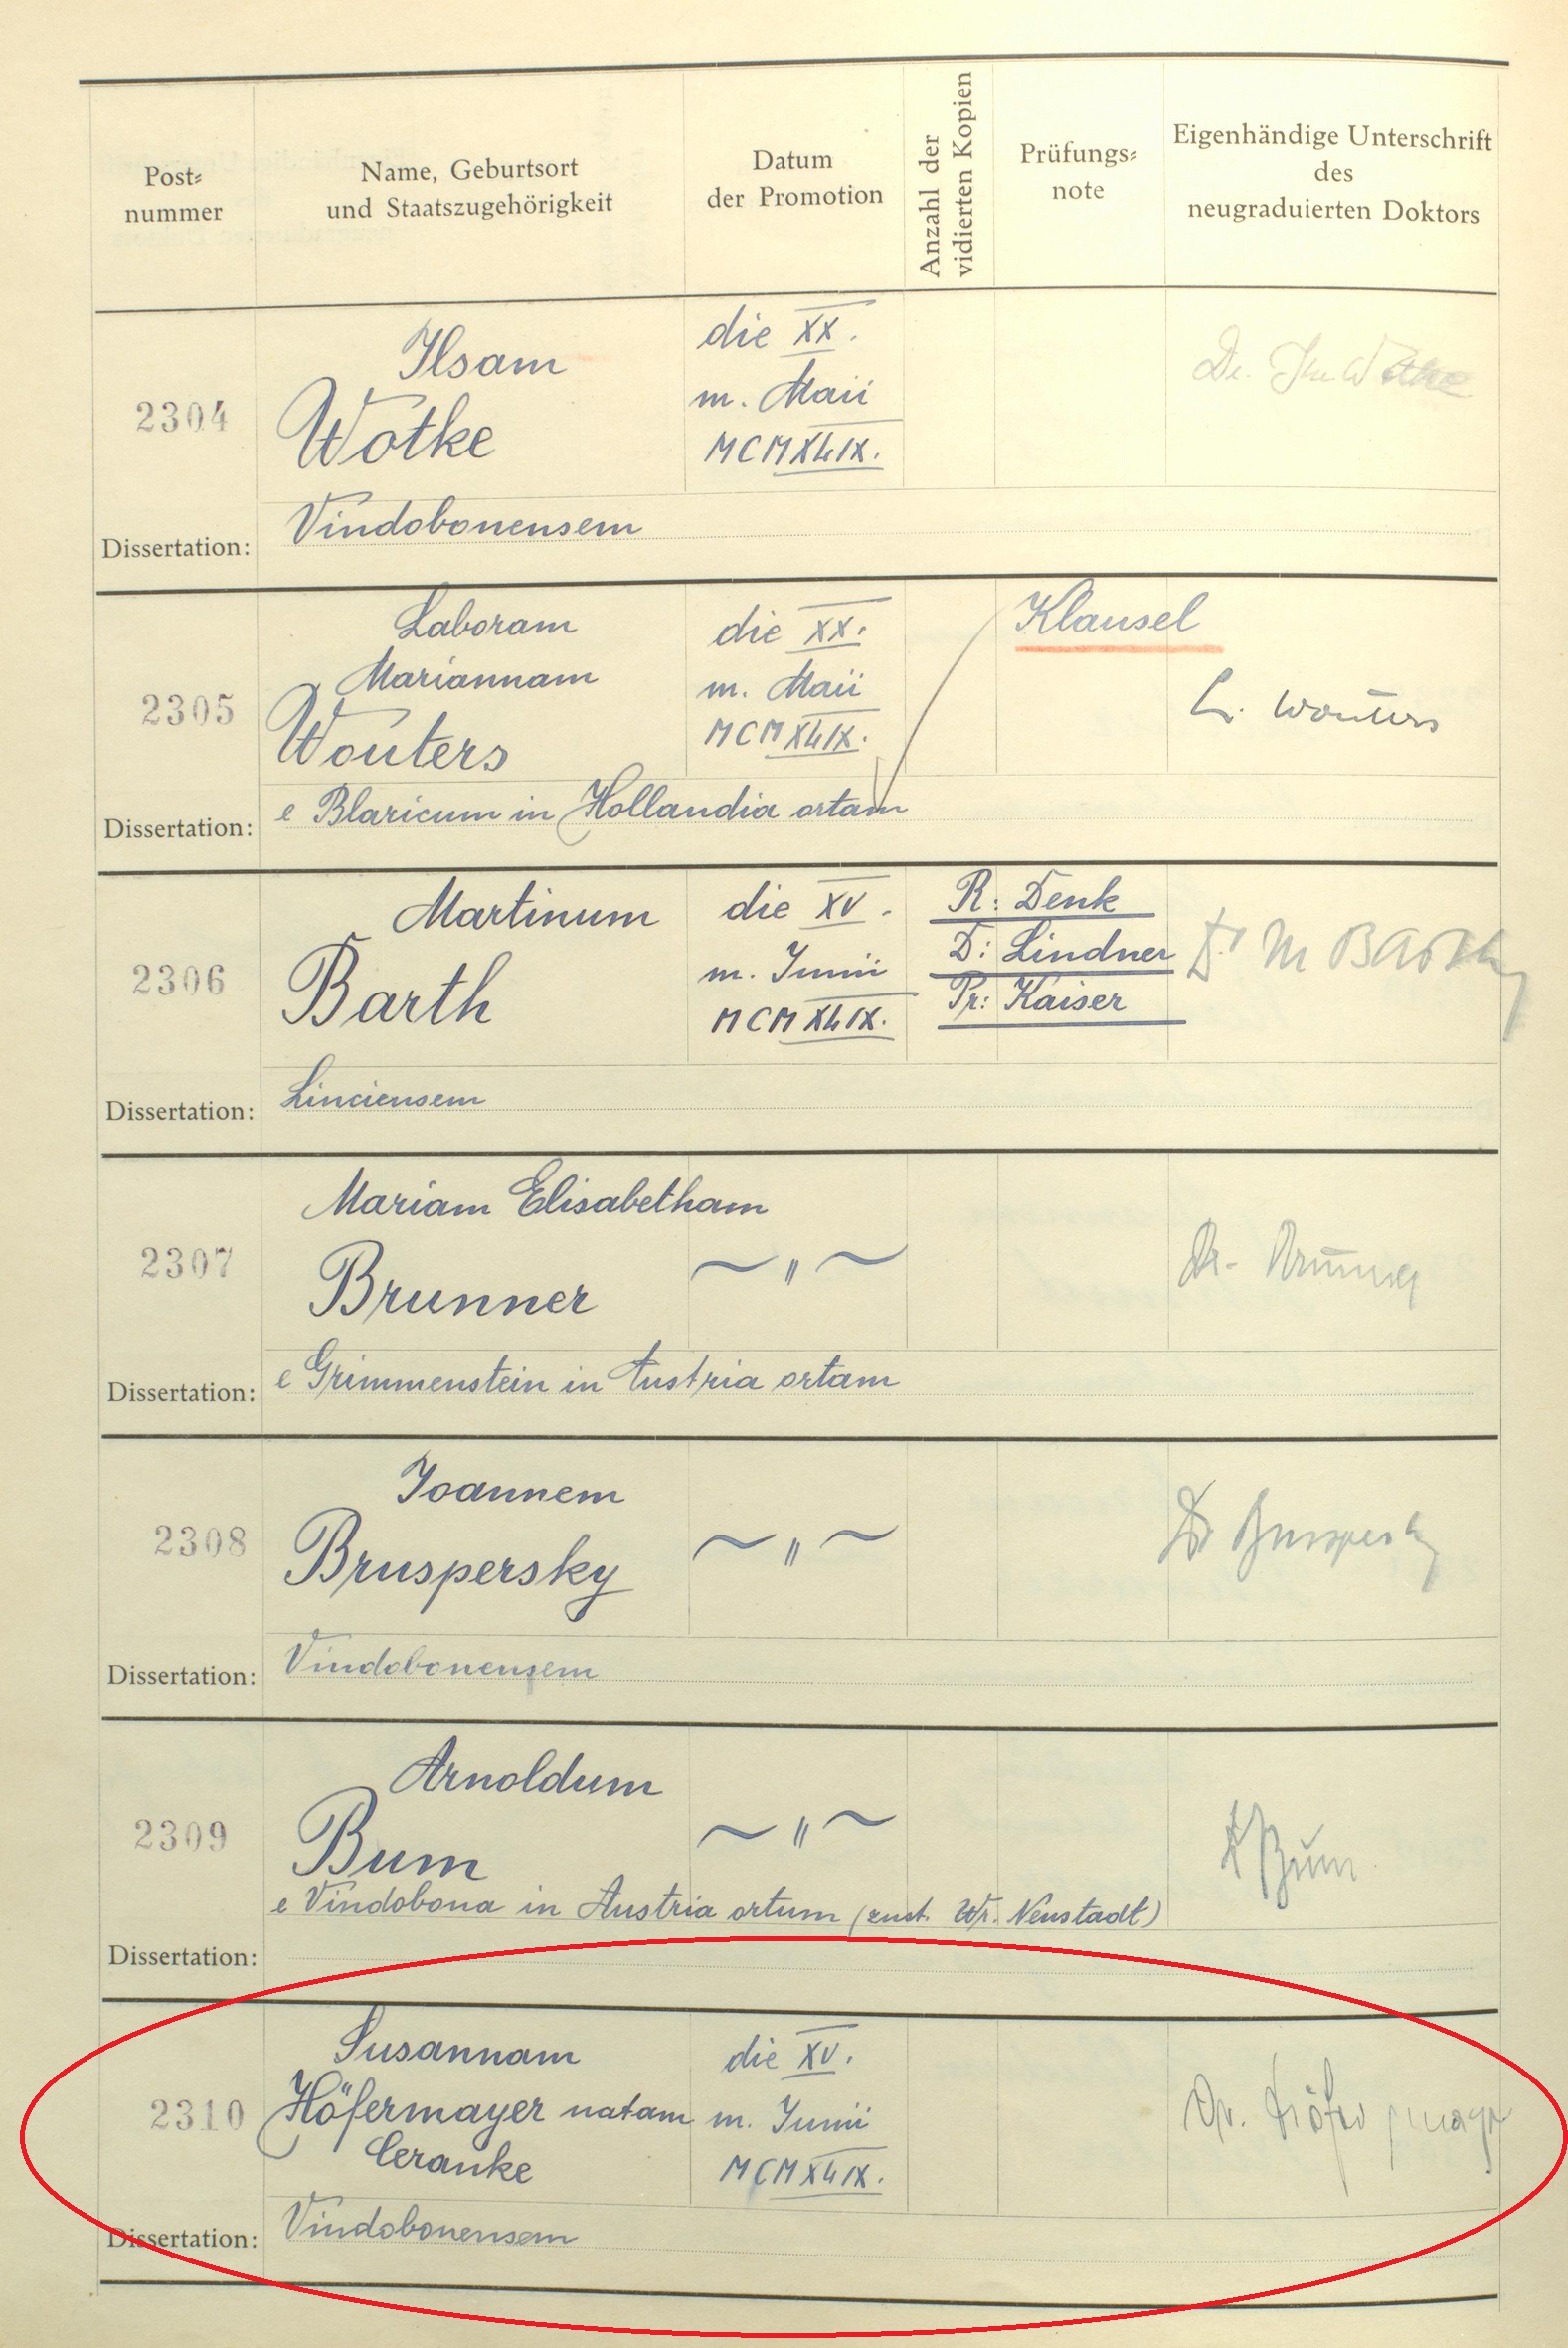 Post=
nummer
Name, Geburtsort
und Staatszugehörigkeit
Datum
der Promotion
Anzahl der
vidierten Kopien
Prüfungs=
note
Eigenhändige Unterschrift
des
neugraduierten Doktors
2304
Ilsam
Wotke
die XX.
m. Maii
MCMXLIX.
Dr. Ilse Wotke
Dissertation: Vindobonensem
2305
Laboram
Mariannam
Wouters
die XX.
m. Maii
MCMXLIX.
Klausel
L. Wouters
Dissertation: e Blaricum in Hollandia ortam
2306
Martinum
Barth
die XV.
m. Junii
MCMXLIX.
R: Denk
D: Lindner
Pr: Kaiser
Dr M Barth
Dissertation: Linciensem
2307
Mariam Elisabetham
Brunner
~ " ~
Dr. Brunner
Dissertation: e Grimmenstein in Austria ortam
2308
Joannem
Bruspersky
~ " ~
Dr Bruspersky
Dissertation: Vindobonensem
2309
Arnoldum
Bum
~ " ~
A Bum
e Vindobona in Austria ortum (zust. Wr. Neustadt)
Dissertation:
2310
Susannam
Höfermayer natam
Ceranke
die XV.
m. Junii
MCMXLIX.
Dr. Höfermayer
Dissertation: Vindobonensem